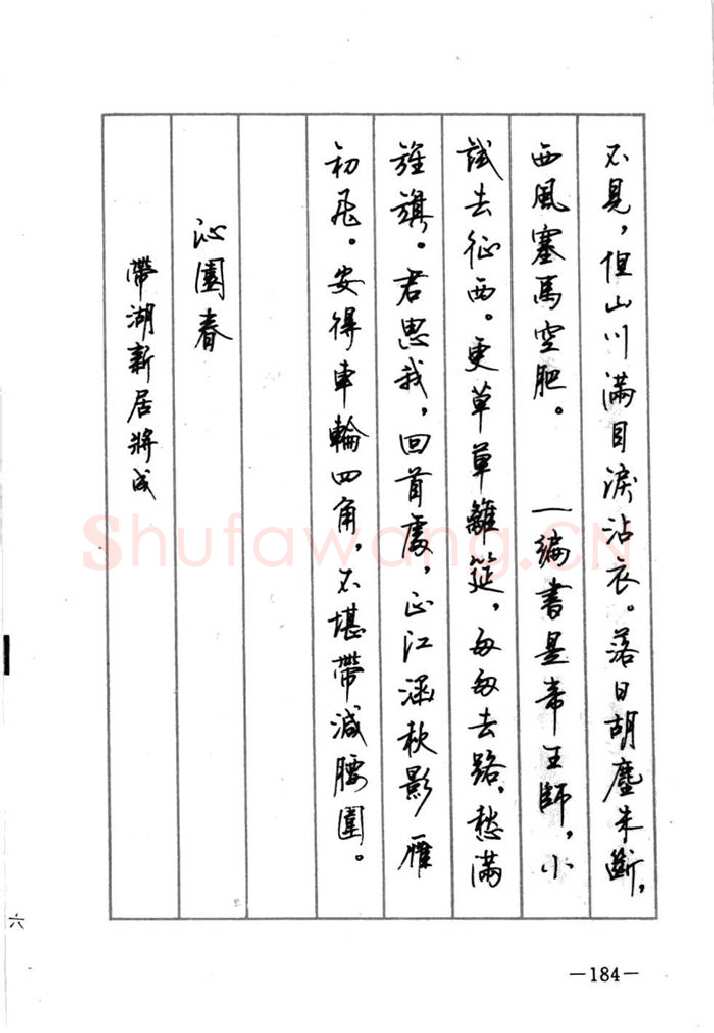 不見，但山川滿目淚沾衣。落日胡塵未斷，
西風塞馬空肥。　一編書是帝王師，小
試去征西。更草草離筵，匆匆去路，愁滿
旌旗。君思我，回首處，正江涵秋影雁
初飛。安得車輪四角，不堪帶減腰圍。
沁園春
帶湖新居將成
Shufawang.CN
六
—184—